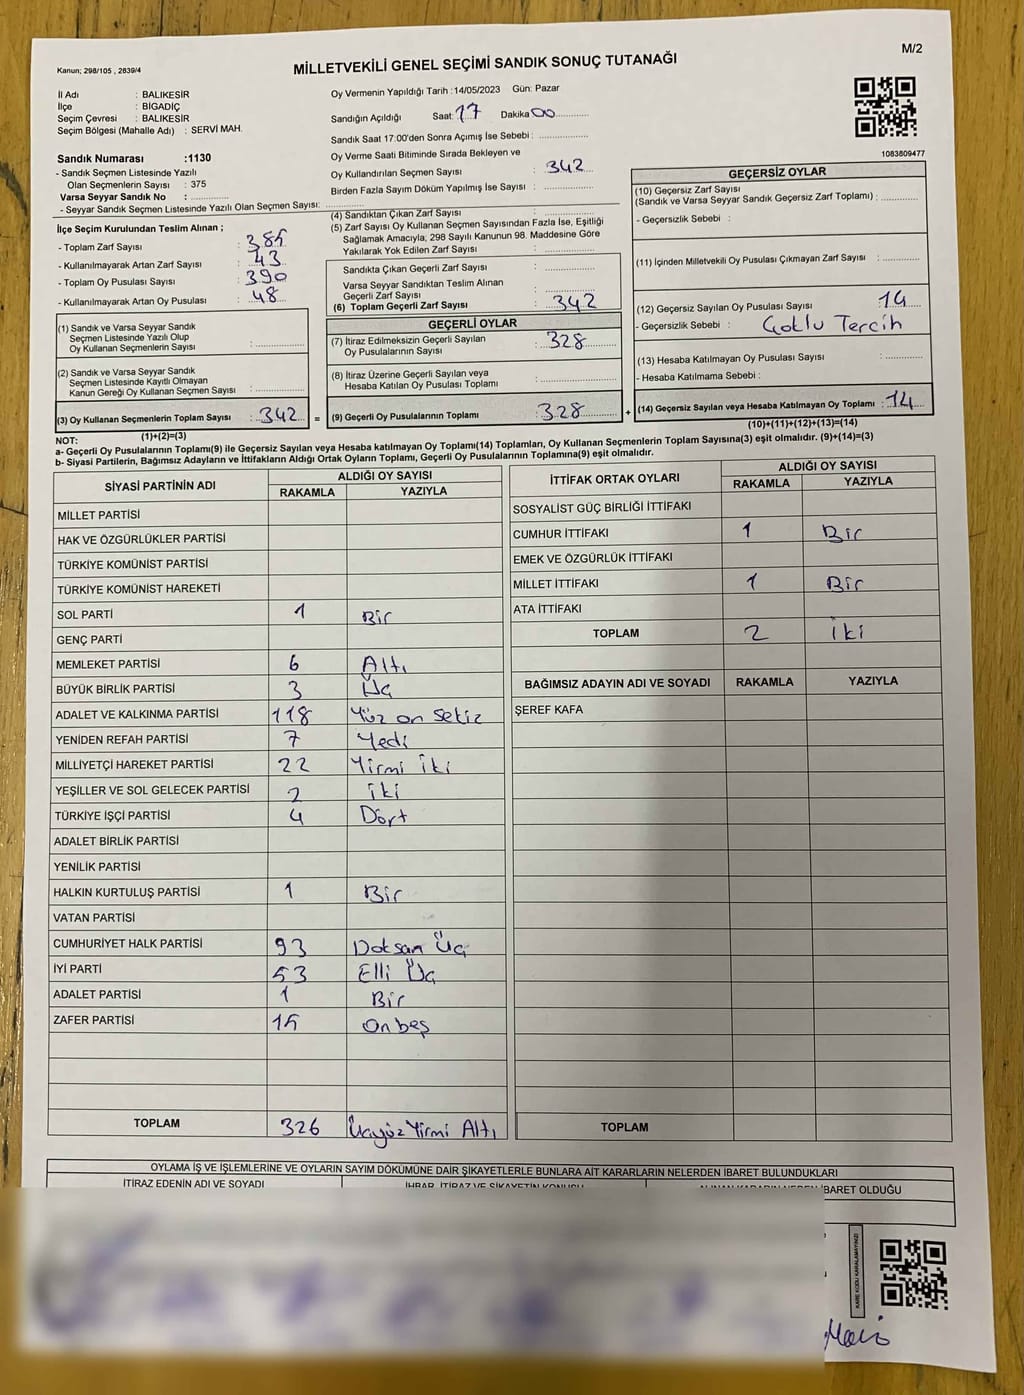 M/2
Kanun; 298/105 , 2839/4
MİLLETVEKİLİ GENEL SEÇİMİ SANDIK SONUÇ TUTANAĞI
İl Adı : BALIKESİR
İlçe : BİGADİÇ
Seçim Çevresi : BALIKESİR
Seçim Bölgesi (Mahalle Adı) : SERVİ MAH.
Sandık Numarası :1130
- Sandık Seçmen Listesinde Yazılı
Olan Seçmenlerin Sayısı : 375
Varsa Seyyar Sandık No :
- Seyyar Sandık Seçmen Listesinde Yazılı Olan Seçmen Sayısı:
Oy Vermenin Yapıldığı Tarih :14/05/2023 Gün: Pazar
Sandığın Açıldığı Saat: 17 Dakika 00
Sandık Saat 17:00'den Sonra Açımış İse Sebebi :
Oy Verme Saati Bitiminde Sırada Bekleyen ve
Oy Kullandırılan Seçmen Sayısı : 342
Birden Fazla Sayım Döküm Yapılmış İse Sayısı :
1083809477
İlçe Seçim Kurulundan Teslim Alınan ;
- Toplam Zarf Sayısı : 385
- Kullanılmayarak Artan Zarf Sayısı : 43
- Toplam Oy Pusulası Sayısı : 390
- Kullanılmayarak Artan Oy Pusulası : 48
(1) Sandık ve Varsa Seyyar Sandık
Seçmen Listesinde Yazılı Olup
Oy Kullanan Seçmenlerin Sayısı :
(2) Sandık ve Varsa Seyyar Sandık
Seçmen Listesinde Kayıtlı Olmayan
Kanun Gereği Oy Kullanan Seçmen Sayısı :
(3) Oy Kullanan Seçmenlerin Toplam Sayısı : 342 =
(1)+(2)=(3)
(4) Sandıktan Çıkan Zarf Sayısı :
(5) Zarf Sayısı Oy Kullanan Seçmen Sayısından Fazla İse, Eşitliği
Sağlamak Amacıyla, 298 Sayılı Kanunun 98. Maddesine Göre
Yakılarak Yok Edilen Zarf Sayısı :
Sandıkta Çıkan Geçerli Zarf Sayısı :
Varsa Seyyar Sandıktan Teslim Alınan
Geçerli Zarf Sayısı :
(6) Toplam Geçerli Zarf Sayısı : 342
GEÇERLİ OYLAR
(7) İtiraz Edilmeksizin Geçerli Sayılan
Oy Pusulalarının Sayısı : 328
(8) İtiraz Üzerine Geçerli Sayılan veya
Hesaba Katılan Oy Pusulası Toplamı :
(9) Geçerli Oy Pusulalarının Toplamı : 328 +
GEÇERSİZ OYLAR
(10) Geçersiz Zarf Sayısı
(Sandık ve Varsa Seyyar Sandık Geçersiz Zarf Toplamı) :
- Geçersizlik Sebebi :
(11) İçinden Milletvekili Oy Pusulası Çıkmayan Zarf Sayısı :
(12) Geçersiz Sayılan Oy Pusulası Sayısı : 14
- Geçersizlik Sebebi : Çoklu Tercih
(13) Hesaba Katılmayan Oy Pusulası Sayısı :
- Hesaba Katılmama Sebebi :
(14) Geçersiz Sayılan veya Hesaba Katılmayan Oy Toplamı : 14
(10)+(11)+(12)+(13)=(14)
NOT:
a- Geçerli Oy Pusulalarının Toplamı(9) ile Geçersiz Sayılan veya Hesaba katılmayan Oy Toplamı(14) Toplamları, Oy Kullanan Seçmenlerin Toplam Sayısına(3) eşit olmalıdır. (9)+(14)=(3)
b- Siyasi Partilerin, Bağımsız Adayların ve İttifakların Aldığı Ortak Oyların Toplamı, Geçerli Oy Pusulalarının Toplamına(9) eşit olmalıdır.
SİYASİ PARTİNİN ADI ALDIĞI OY SAYISI
RAKAMLA YAZIYLA
MİLLET PARTİSİ
HAK VE ÖZGÜRLÜKLER PARTİSİ
TÜRKİYE KOMÜNİST PARTİSİ
TÜRKİYE KOMÜNİST HAREKETİ
SOL PARTİ 1 Bir
GENÇ PARTİ
MEMLEKET PARTİSİ 6 Altı
BÜYÜK BİRLİK PARTİSİ 3 Üç
ADALET VE KALKINMA PARTİSİ 118 Yüz on sekiz
YENİDEN REFAH PARTİSİ 7 Yedi
MİLLİYETÇİ HAREKET PARTİSİ 22 Yirmi iki
YEŞİLLER VE SOL GELECEK PARTİSİ 2 iki
TÜRKİYE İŞÇİ PARTİSİ 4 Dört
ADALET BİRLİK PARTİSİ
YENİLİK PARTİSİ
HALKIN KURTULUŞ PARTİSİ 1 Bir
VATAN PARTİSİ
CUMHURİYET HALK PARTİSİ 93 Doksan Üç
İYİ PARTİ 53 Elli Üç
ADALET PARTİSİ 1 Bir
ZAFER PARTİSİ 15 Onbeş
TOPLAM 326 Üçyüz Yirmi Altı
İTTİFAK ORTAK OYLARI ALDIĞI OY SAYISI
RAKAMLA YAZIYLA
SOSYALİST GÜÇ BİRLİĞİ İTTİFAKI
CUMHUR İTTİFAKI 1 Bir
EMEK VE ÖZGÜRLÜK İTTİFAKI
MİLLET İTTİFAKI 1 Bir
ATA İTTİFAKI
TOPLAM 2 iki
BAĞIMSIZ ADAYIN ADI VE SOYADI RAKAMLA YAZIYLA
ŞEREF KAFA
TOPLAM
OYLAMA İŞ VE İŞLEMLERİNE VE OYLARIN SAYIM DÖKÜMÜNE DAİR ŞİKAYETLERLE BUNLARA AİT KARARLARIN NELERDEN İBARET BULUNDUKLARI
İTİRAZ EDENİN ADI VE SOYADI
İHBAR, İTİRAZ VE ŞİKAYETİN KONUSU
ALINAN KARARIN NEDEN İBARET OLDUĞU
KARE KODU KARALAMAYINIZ!